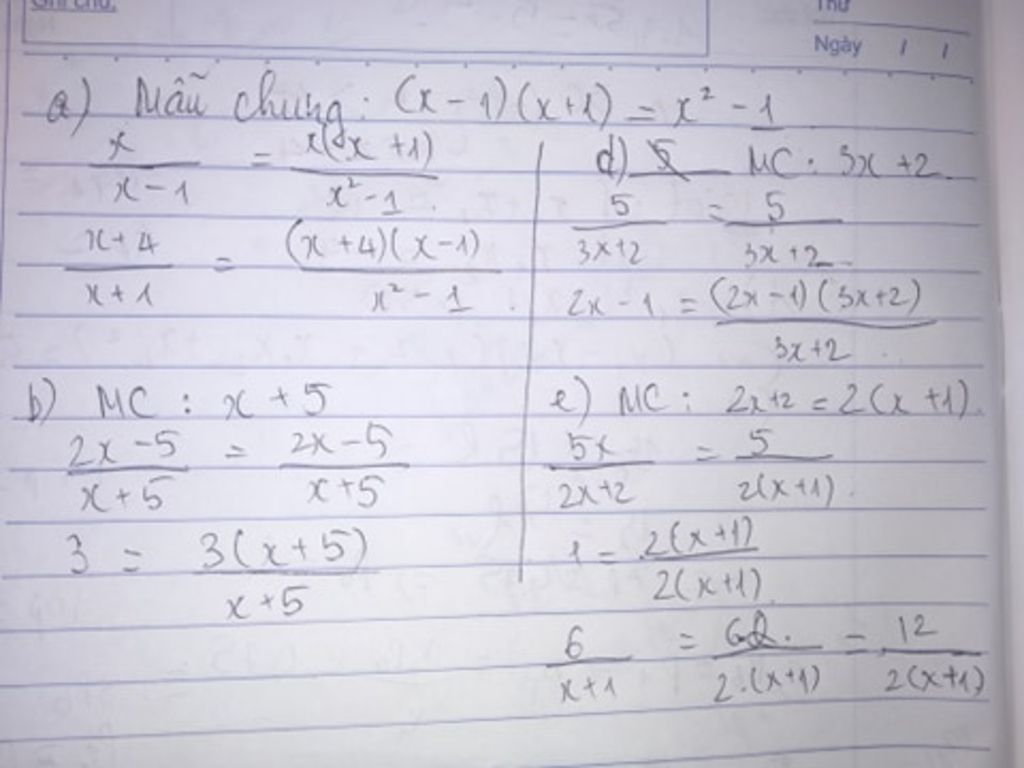 Ghi chú:
Thứ
Ngày / /
a) Mẫu chung: (x - 1)(x+1) = x² - 1
x/(x-1) = x(x+1)/(x²-1).
(x+4)/(x+1) = (x+4)(x-1)/(x²-1).
b) MC : x + 5
(2x-5)/(x+5) = (2x-5)/(x+5)
3 = 3(x+5)/(x+5)
d) MC : 3x +2
5/(3x+2) = 5/(3x+2).
2x - 1 = (2x-1)(3x+2)/(3x+2).
e) MC : 2x+2 = 2(x+1).
5x/(2x+2) = 5/(2(x+1)).
1 = 2(x+1)/(2(x+1))
6/(x+1) = 6.2./(2.(x+1)) = 12/(2(x+1))